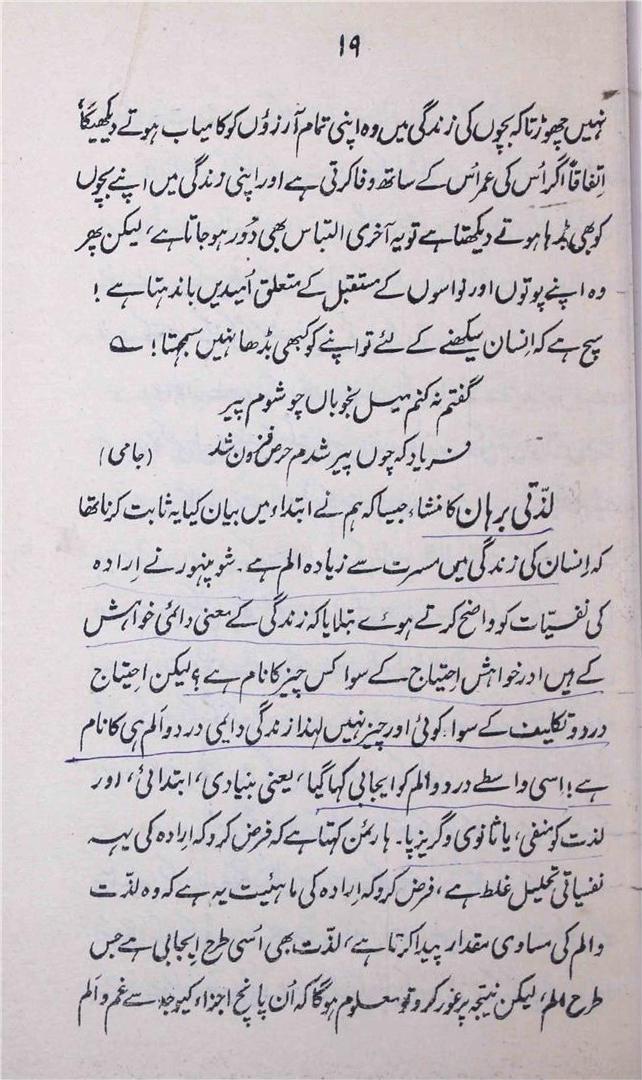 ۱۹
نہیں چھوڑتا کہ بچوں کی زندگی میں وہ اپنی تمام آرزوؤں کو کامیاب ہوتے دیکھیگا،
اِتفاقاً اگر اُس کی عمر اُس کے ساتھ وفا کرتی ہے اور اپنی زندگی میں اپنے بچوں
کو بھی بڈہا ہوتے دیکھتا ہے تو یہ آخری التباس بھی دُور ہو جاتا ہے، لیکن پھر
وہ اپنے پوتوں اور نواسوں کے مستقبل کے متعلق اُمیدیں باندہتا ہے!
سچ ہے کہ اِنسان سیکھنے کے لئے تو اپنے کو کبھی بڈھا نہیں سمجہتا! ؎
گفتم نہ کنم میل بخوباں چو شوم پیر
فریاد کہ چوں پیر شدم حرص فزون شد (جامی)
لذّتی برہان کا منشاء جیسا کہ ہم نے ابتداء میں بیان کیا یہ ثابت کرنا تھا
کہ اِنسان کی زندگی میں مسرت سے زیادہ الم ہے۔ شوپنہور نے اِرادہ
کی نفسیّات کو واضح کرتے ہوے بتلایا کہ زندگی کے معنی دائمی خواہش
کے ہیں اور خواہش اِحتیاج کے سوا کس چیز کا نام ہے؟ لیکن اِحتیاج
درد و تکلیف کے سوا کوئی اور چیز نہیں لہذا زندگی دایمی درد و اَلم ہی کا نام
ہے! اِسی واسطے درد و الم کو ایجابی کہا گیا، یعنی بنیادی، ابتدائی، اور
لذت کو منفی، یا ثانوی و گریزپا۔ ہارٹمن کہتا ہے کہ فرض کرو کہ اِرادہ کی یہہ
نفسیاتی تحلیل غلط ہے، فرض کرو کہ اِرادہ کی ماہئیت یہ ہے کہ وہ لذّت
و الم کی مساوی مقدار پیدا کرتا ہے، لذّت بھی اُسی طرح اِیجابی ہے جس
طرح الم، لیکن نتیجہ پر غور کرو تو معلوم ہوگا کہ اُن پانچ اجزاء کیوجہ سے غم و اَلم